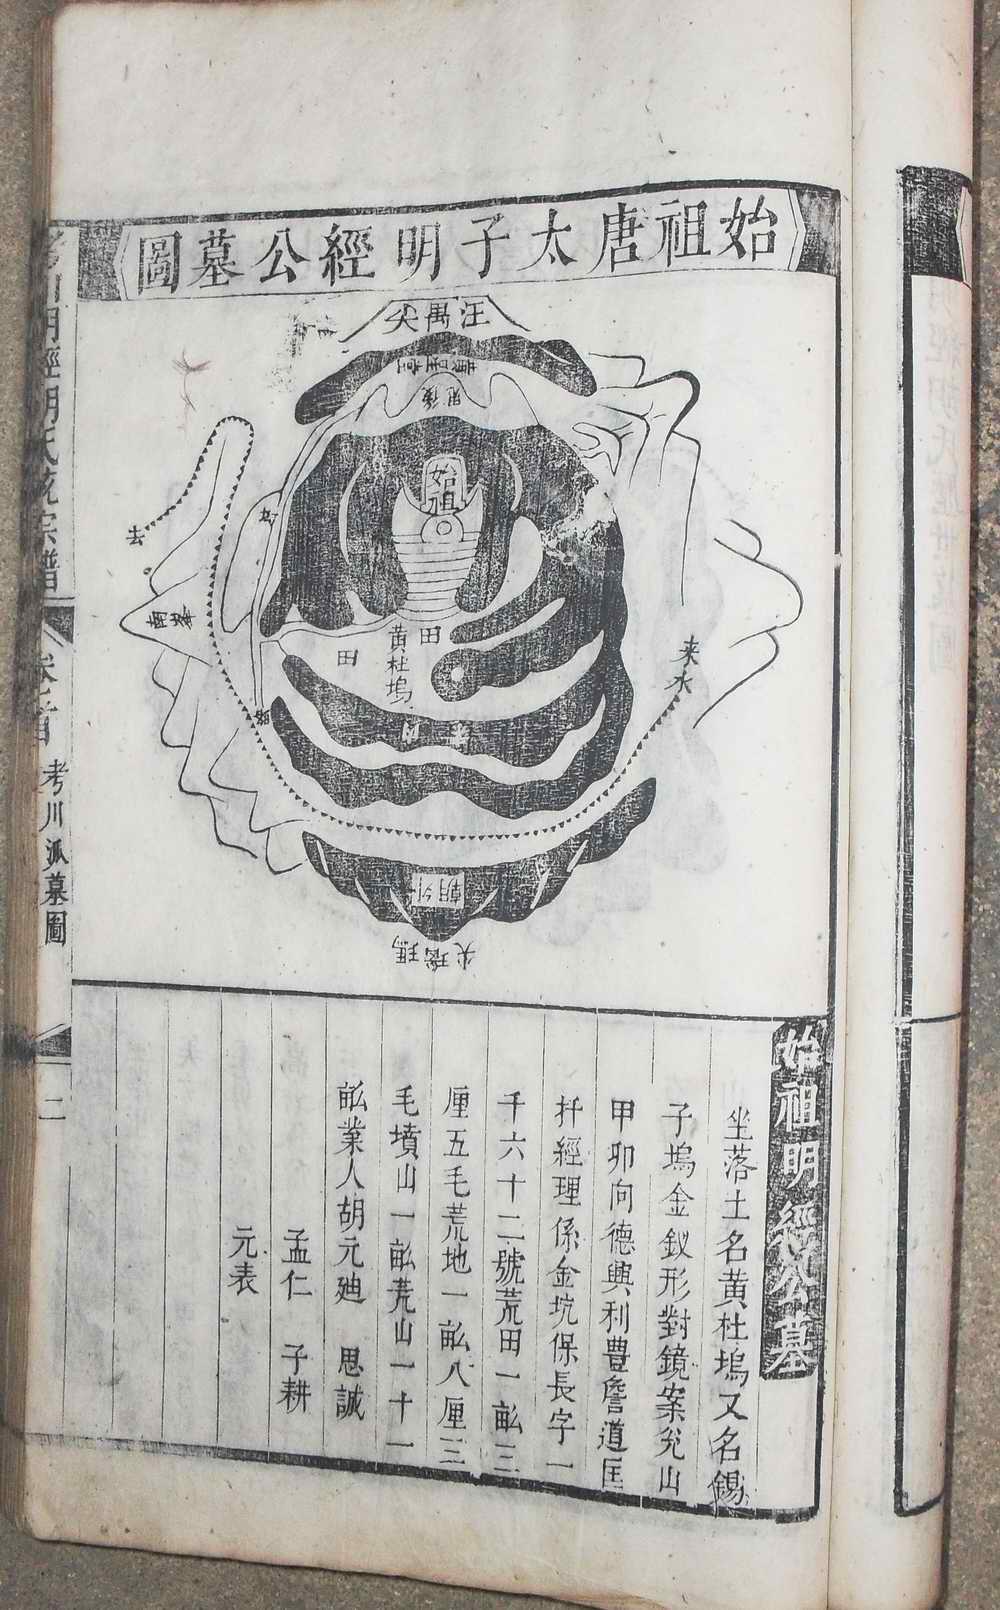 始祖唐太子明經公墓圖
汪禺尖
後思
始祖
去
田
田
黃杜塢
来水
朝外
尖瑙瑪
始祖明經公墓
坐落土名黃杜塢又名錫
子塢金釵形對鏡案兊山
甲卯向德興利豊詹道匡
扦經理係金坑保長字一
千六十二號荒田一畝三
厘五毛荒地一畝八厘三
毛墳山一畝荒山一十一
畝業人胡元廸 思誠
孟仁 子耕
元表
明經胡氏統宗譜
卷首
考川派墓圖
二